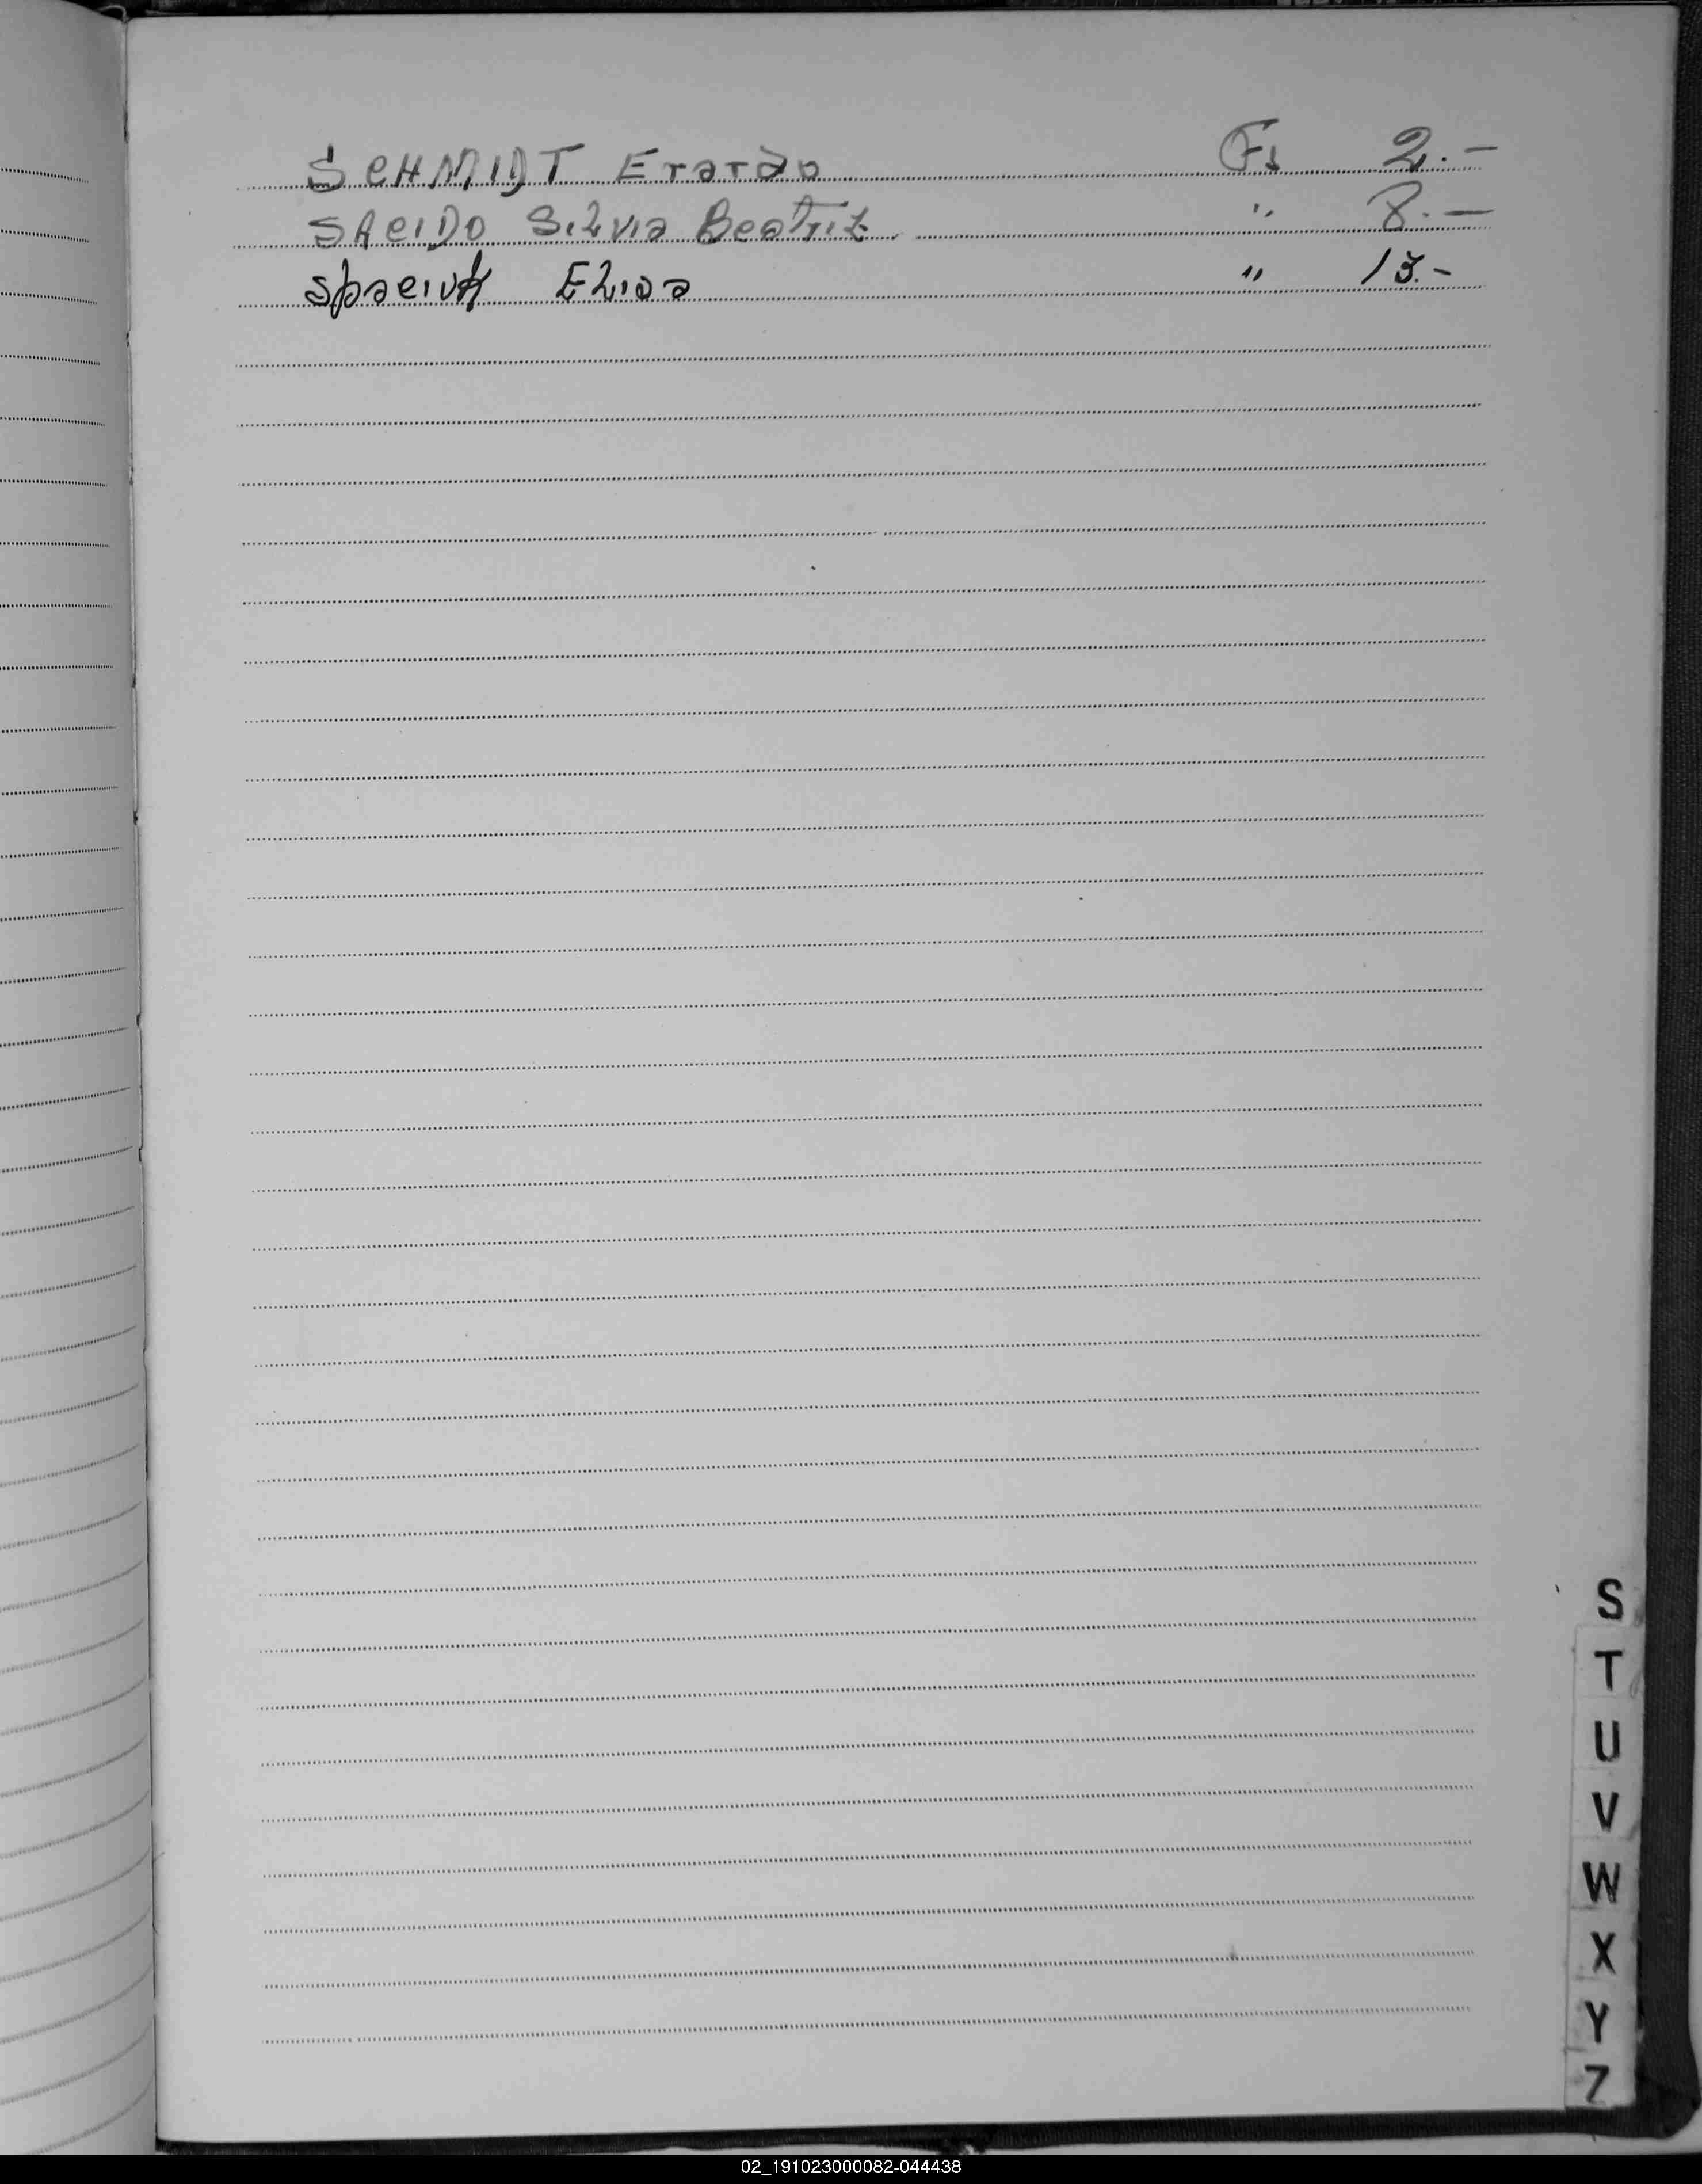 SCHMIDT Erardo Fs 2.-
SACIDO Silvia Beatriz. " 8.-
Spaciuk Elisa " 13.-
S
T
U
V
W
X
Y
Z
02_191023000082-044438